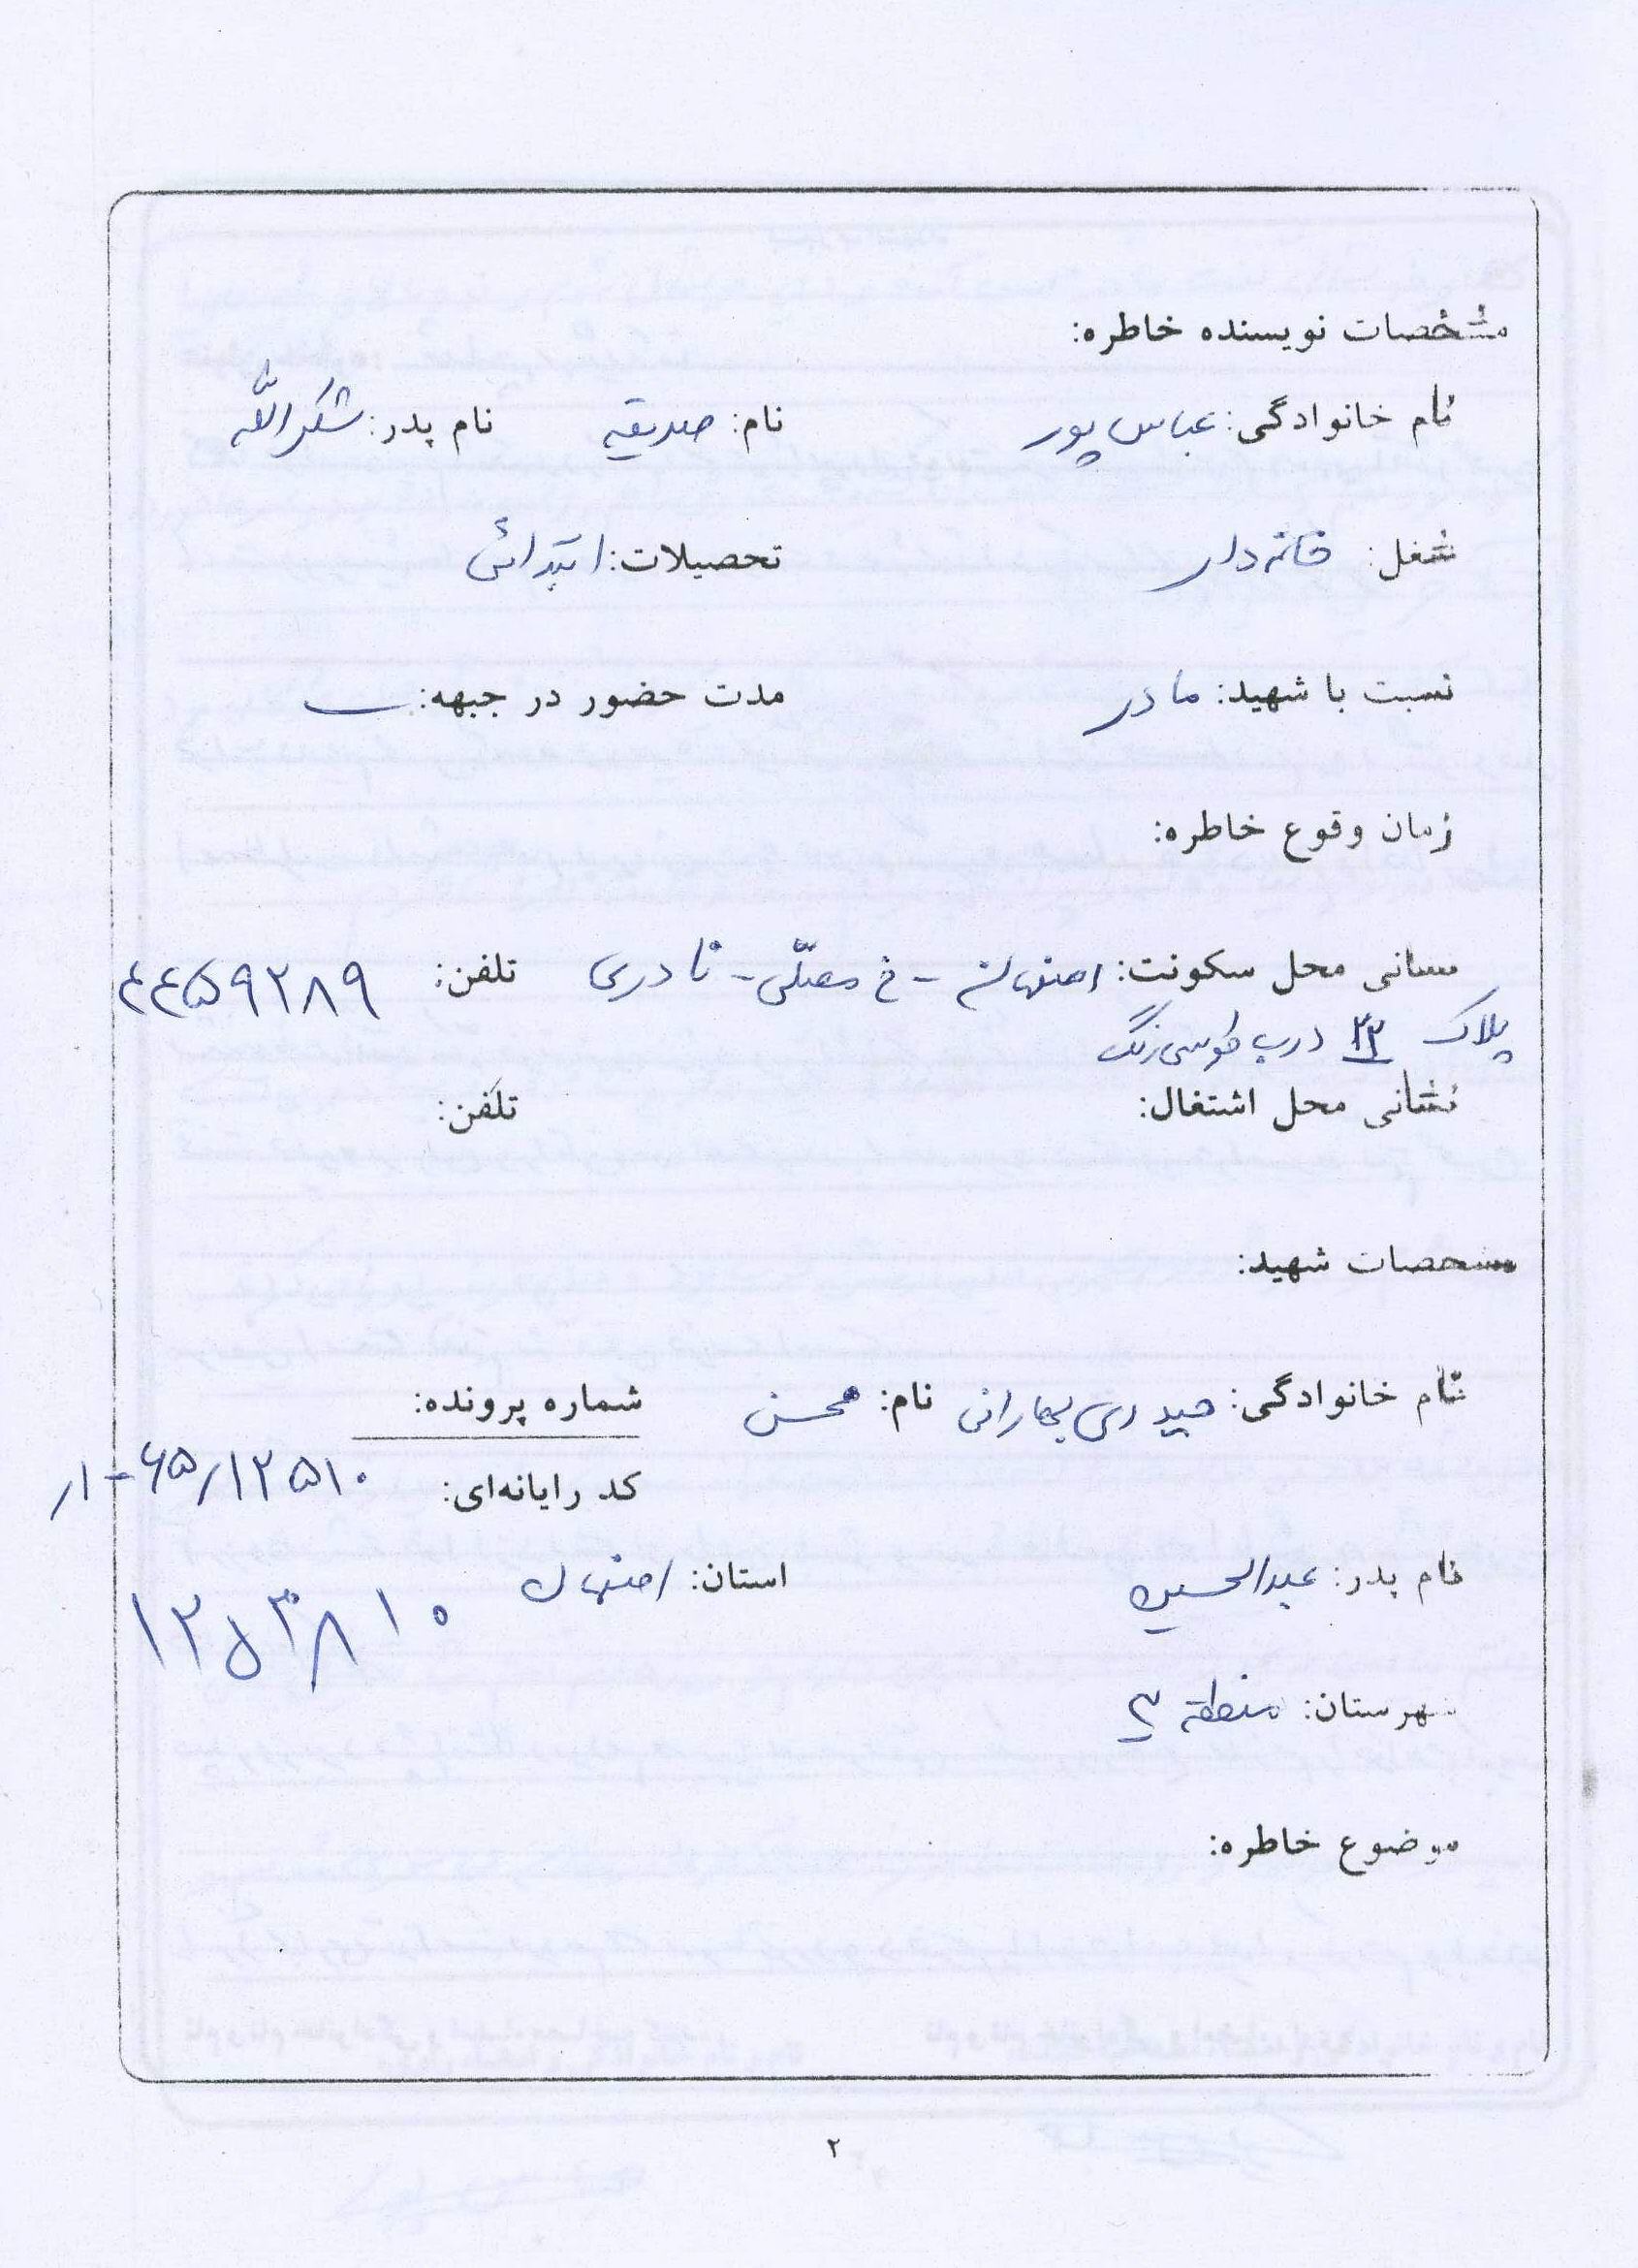 مشخصات نویسنده خاطره:
نام خانوادگی: عباس پور نام: صدیقه نام پدر: شکرالله
شغل: خانه دار تحصیلات: ابتدائی
نسبت با شهید: مادر مدت حضور در جبهه:
زمان وقوع خاطره:
نشانی محل سکونت: اصفهان - خ مصلّی - نادری تلفن: ۴۴۵۹۲۸۹
پلاک ۲۳ درب طوسی رنگ
نشانی محل اشتغال: تلفن:
مشخصات شهید:
نام خانوادگی: حیدری بهارانی نام: محسن شماره پرونده:
کد رایانه‌ای: ۶۵/۱۲۵۱۰
نام پدر: عبدالحسین استان: اصفهان
۱۲۵۳۸۱۰
شهرستان: منطقه ۳
موضوع خاطره:
۲